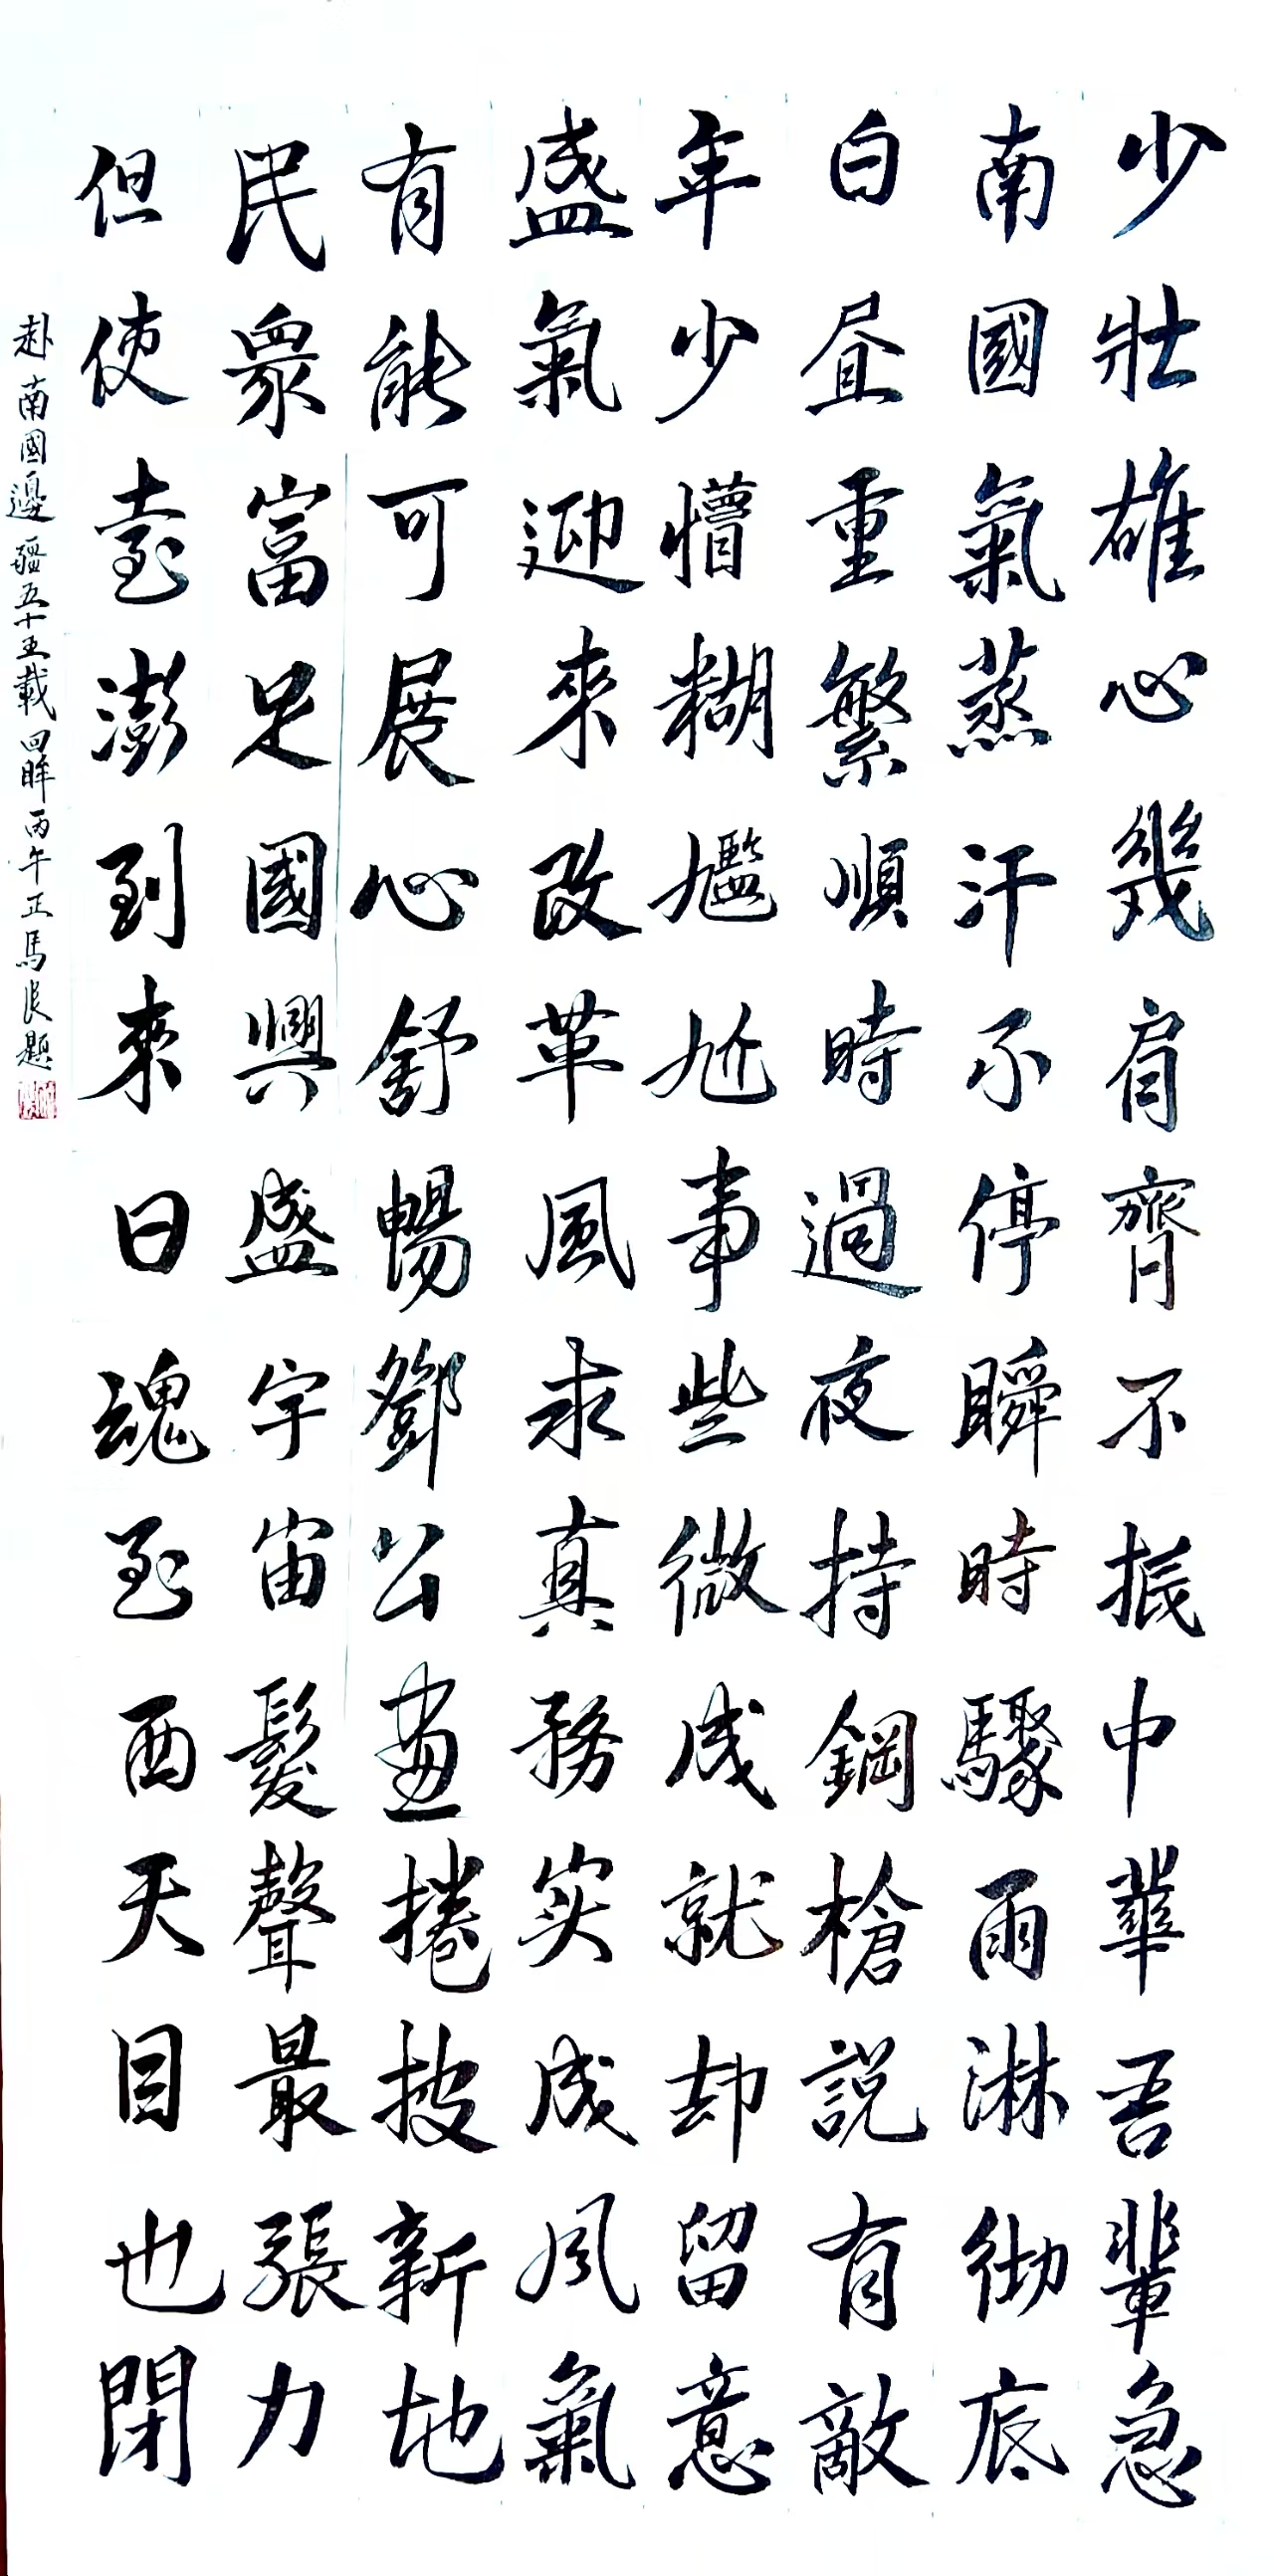 少壯雄心幾肩齊不振中華吾輩急
南國氣蒸汗不停瞬時驟雨淋彻底
白昼重繁順時過夜持鋼槍説有敵
年少懵糊尷尬事些微成就却留意
盛氣迎來改革風求真務实成风氣
有能可展心舒暢鄧公画捲披新地
民眾富足國興盛宇宙髮聲最張力
但使臺澎到來日魂至西天目也閉
赴南國邊疆五十五載回眸丙午正馬良題